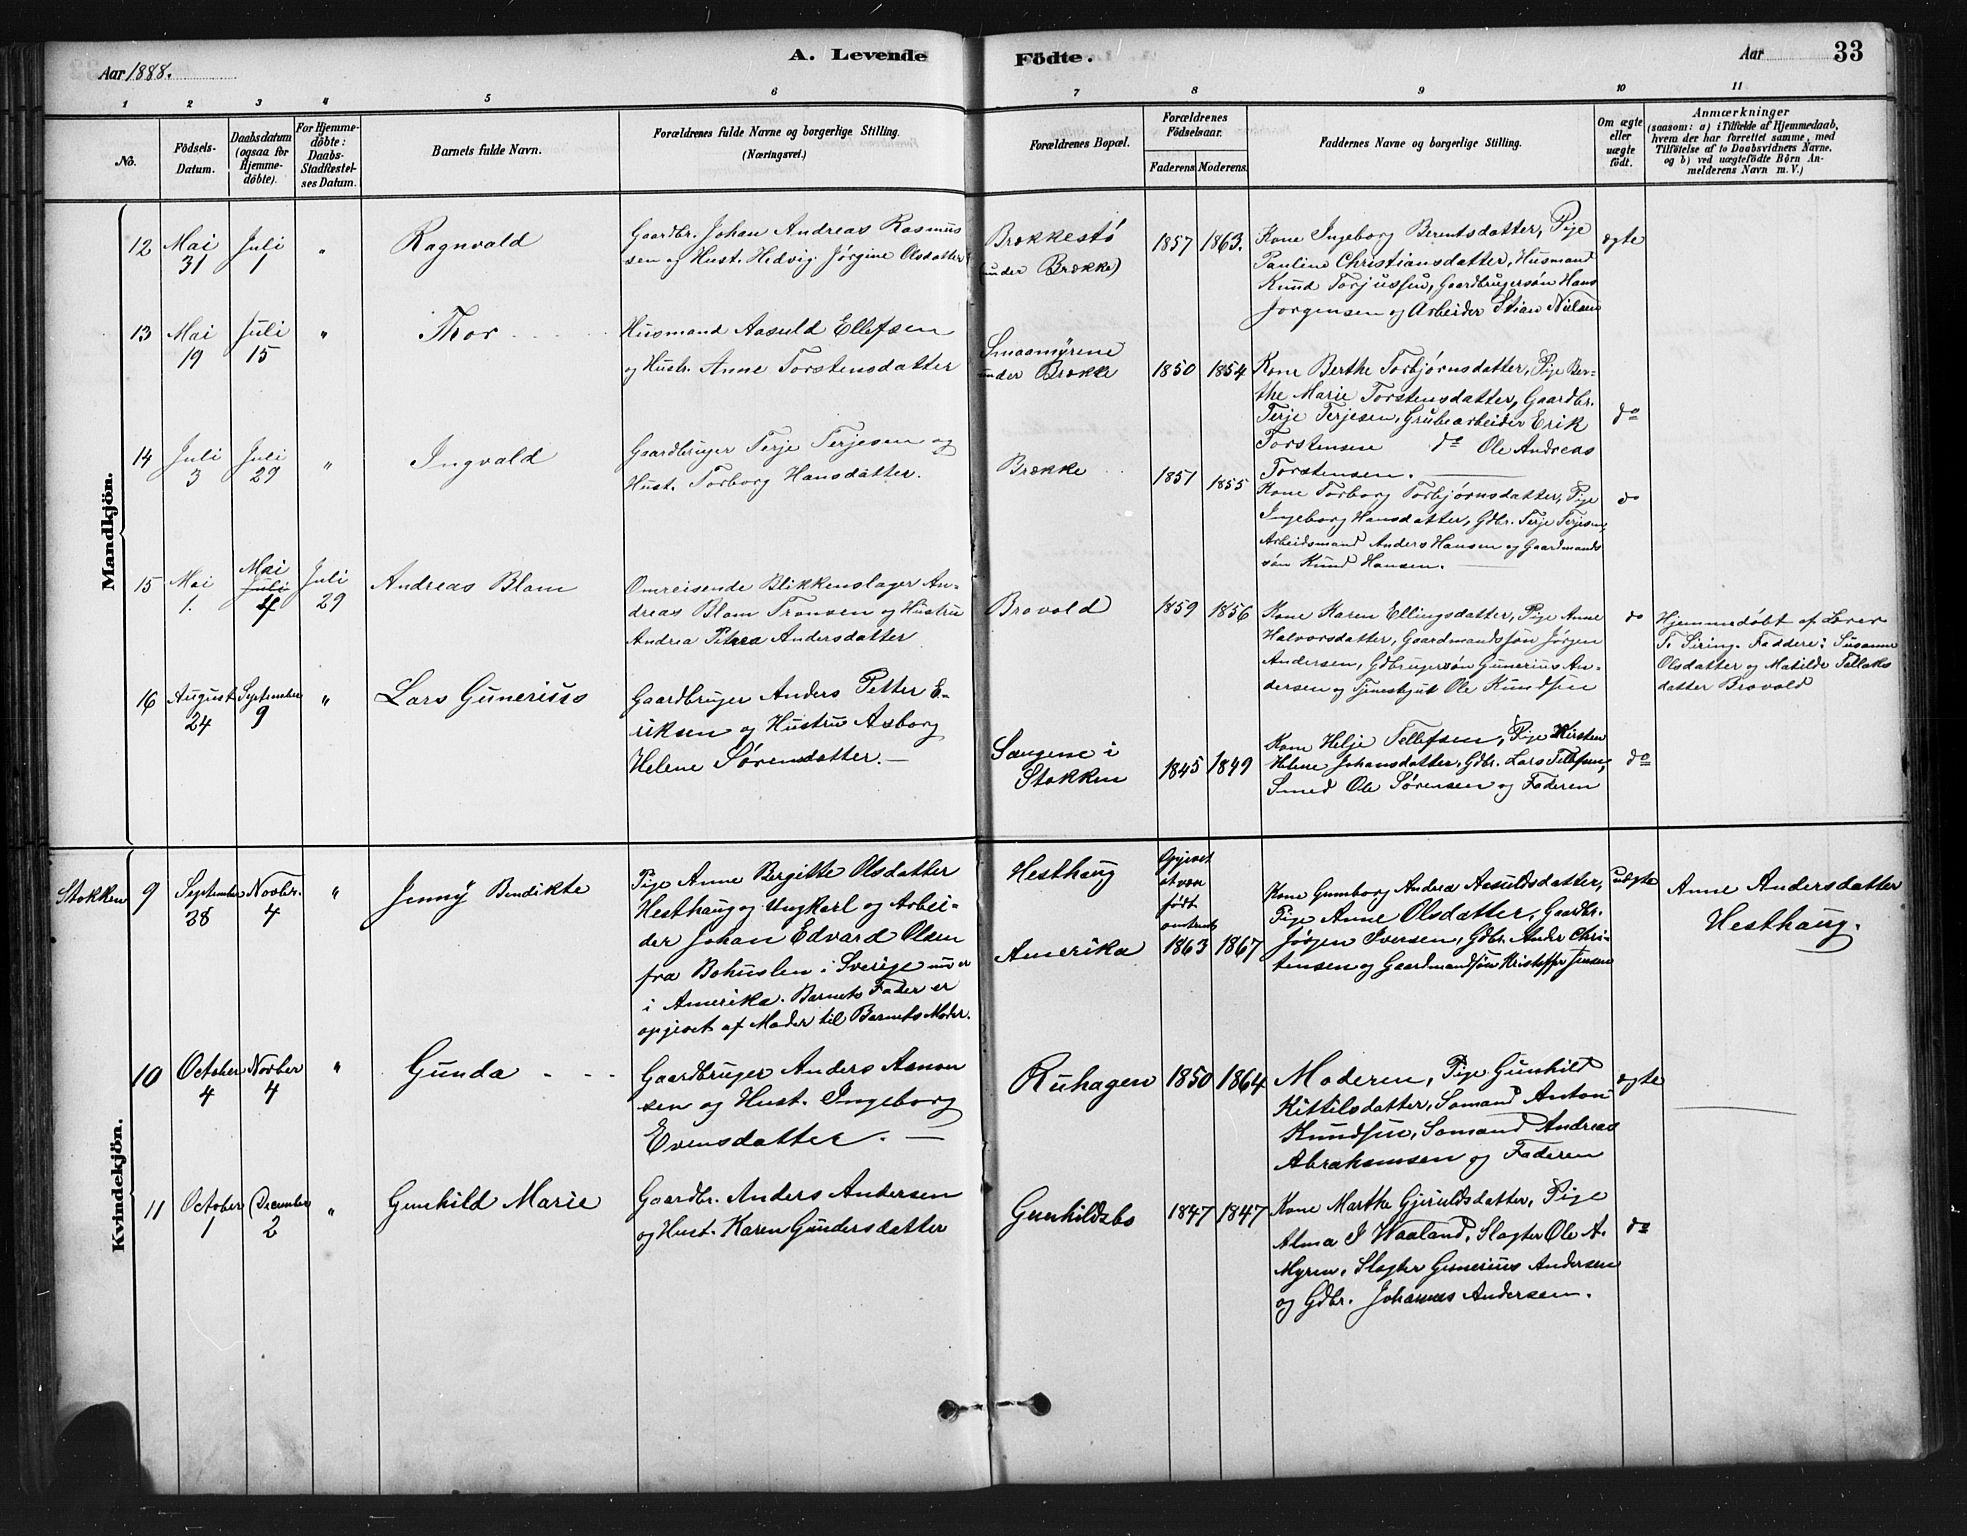 Aar 1888.
A. Levende
Födte.
Aar
33
1 2 3 4 5 6 7 8 9 10 11
No.
Födsels-
Datum.
Daabsdatum
(ogsaa for
Hjemme-
döbte).
For Hjemme-
döbte:
Daabs-
Stadfæstel-
ses Datum.
Barnets fulde Navn.
Forældrenes fulde Navne og borgerlige Stilling.
(Næringsvei.)
Forældrenes Bopæl.
Forældrenes
Födselsaar.
Faderens.
Moderens.
Faddernes Navne og borgerlige Stilling.
Om ægte
eller
uægte
födt.
Anmærkninger
(saasom: a) i Tilfælde af Hjemmedaab,
hvem der har forrettet samme, med
Tilföielse af to Daabsvidners Navne,
og b) ved uægtefödte Börn An-
melderens Navn m. V.)
Mandkjön.
12
Mai
31
Juli
1
"
Ragnvald
Gaardbr. Johan Andreas Rasmus
sen og Hust. Hedvig Jørgine Olsdatter
Brækkestö
(under Brække)
1857
1863.
Kone Ingeborg Berentsdatter, Pige
Pauline Christiansdatter, Husmand
Knud Torjussen, Gaardbrugersøn Hans
Jorgensen og Arbeider Stian Nielsen
ægte
13
Mai
19
Juli
15
"
Thor
Husmand Aasuld Ellefsen
og Hustr. Anne Torstensdatter
Smaamyrene
under Brække
1850
1854
Kone Berthe Torbjørnsdatter, Pige Ber-
the Marie Torstensdatter, Gaardbr.
Terje Terjesen, Grubearbeider Erik
Torstensen do Ole Andreas
Torstensen.
do
14
Juli
3
Juli
29
"
Ingvald
Gaardbruger Terje Terjesen og
Hust. Torborg Hansdatter.
Brække
1857
1855
Kone Torborg Torbjørnsdatter, Pige
Ingeborg Hansdatter, Gdbr. Terje Terjesen,
Arbeidsmand Anders Hansen og Gaardmands
søn Knud Hansen.
do
15
Mai
1.
Mai
Juli
4
Juli
29
Andreas Blom
Omreisende Blikkenslager An-
dreas Blom Tronsen og Hustru
Andrea Petrea Andersdatter
Brovold
1859
1856
Kone Karen Ellingsdatter, Pige Anne
Halvorsdatter, Gaardmandssøn Jørgen
Andersen, Gdbrugersøn Gunerius An-
dersen og Tjenestgut Ole Knudsen
do
Hjemmedøbt af Lærer
T. Siring. Faddere: Susanne
Olsdatter og Matilde Tellaks
datter Brovold
16
August
24
September
9
"
Lars Gunerius
Gaardbruger Anders Petter E-
riksen og Hustru Asborg
Helene Sørensdatter.
Sangene i
Stokken
1845
1849
Kone Helje Tellefsen, Pige Kirsten
Helene Johansdatter, Gdbr. Lars Tellefsen,
Smed Ole Sørensen og Faderen
do
Kvindekjön.
Stokken
9
September
28
Novbr.
4
"
Jenny Bendikte
Pige Anne Bergitte Olsdatter
Hesthaug og Ungkarl og Arbei-
der Johan Edvard Olsen
fra Bohuslen i Sverige nu er
i Amerika. Barnets Fader er
opgivet af Moder til Barnets Moder.
Hesthaug
Amerika
Opgivet
at være
født
omtrent
1863
1867
Kone Gunborg Andrea Aasuldsdatter,
Pige Anne Olsdatter, Gaardbr.
Jørgen Iversen, Gdbr. Ander Chri-
stensen og Gaardmandssøn Kristoffer Jensen
uægte
Anne Andersdatter
Hesthaug.
10
October
4
Novber
4
"
Gunda
Gaardbruger Anders Asmon
sen og Hust. Ingeborg
Evensdatter.
Ruhagen
1850
1864
Moderen, Pige Gunhild
Kittilsdatter, Sømand Anton
Knudsen, Sømand Andreas
Abrahamsen og Faderen
ægte
11
October
1
December
2
"
Gunhild Marie
Gaardbr. Anders Andersen
og Hust. Karen Gundersdatter
Gunhildsbo
1847
1847
Kone Marthe Gjeruldsdatter, Pige
Alma J Waaland, Slagter Ole A.
Myren, Slagter Gunerius Andersen
og Gdbr. Johannes Andersen.
do